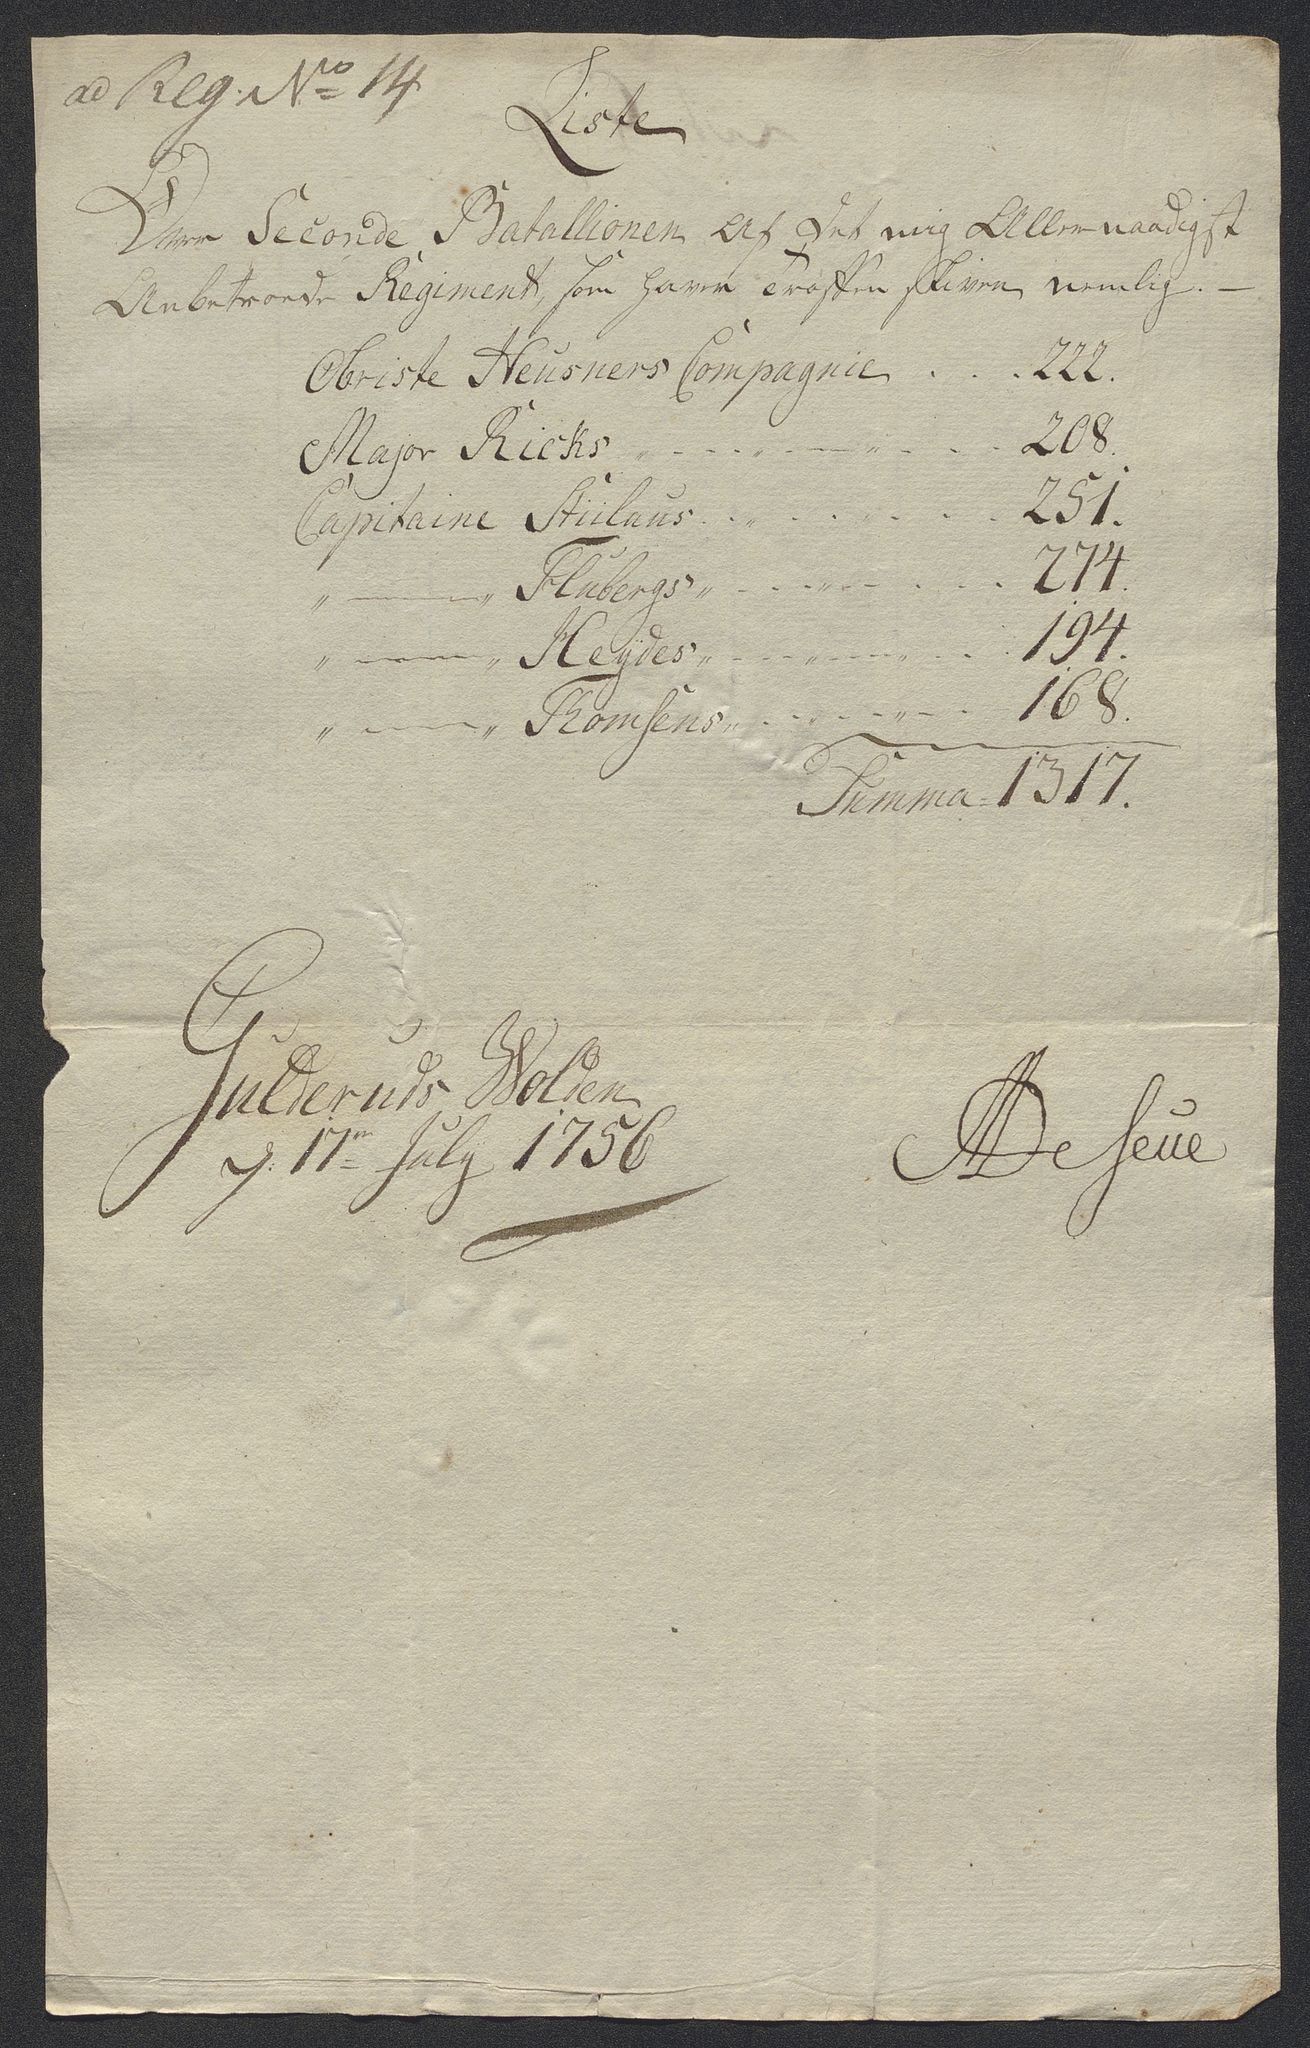 ad Reg. No 14
Liste
Over Seconde Batallionen Af det mig Allernaadigst
Anbetroede Regiment, som haver Troffen skiven nemlig. —
Obriste Heusners Compagnie . . . 222.
Major Ricks „ - - - „ — „ - - - 208.
Capitaine Stiilaus . . „ . . . . . 251.
„ —— „ Flubergs „ - - - „ — - - - 274.
„ —— „ Heÿdes „ - - - „ — „ - - 194.
„ —— „ Thomsens „ - - - „ — „ - - 168.
Summa = 1317.
Gulderuds Wolden
d: 17n July 1756
AD Seue